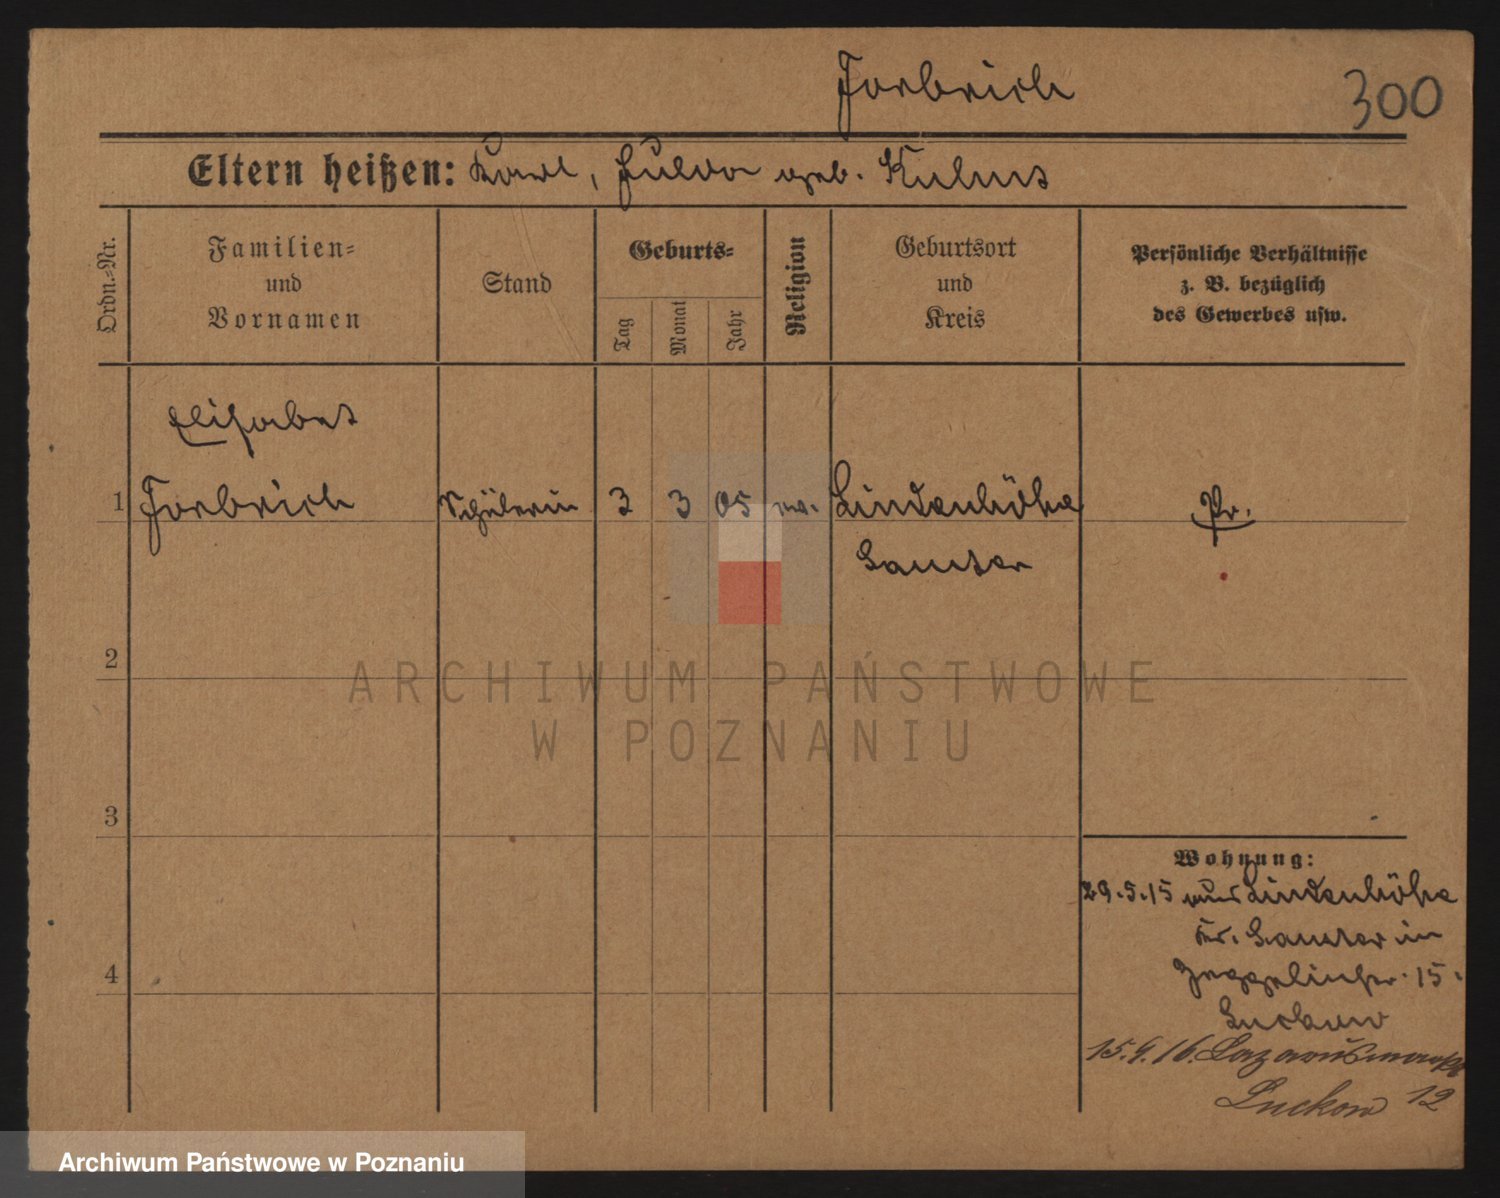 Forbrich 300
Eltern heißen: Karl, Hulda geb. Kulms
Ordn.=Nr.
Familien=
und
Vornamen
Stand
Geburts=
Tag
Monat
Jahr
Religion
Geburtsort
und
Kreis
Persönliche Verhältnisse
z. B. bezüglich
des Gewerbes usw.
Elisabet
1 Forbrich Schülerin 3 3 05 ev. Lindenhöhe Pr.
Samter
2
3
4
Wohnung:
29.5.15 aus Lindenhöhe
Kr. Samter in
Zeppelinstr. 15.
Luckow
15.9.16. Lazarusmarkt
Luckow 12
ARCHIWUM PAŃSTWOWE
W POZNANIU
Archiwum Państwowe w Poznaniu